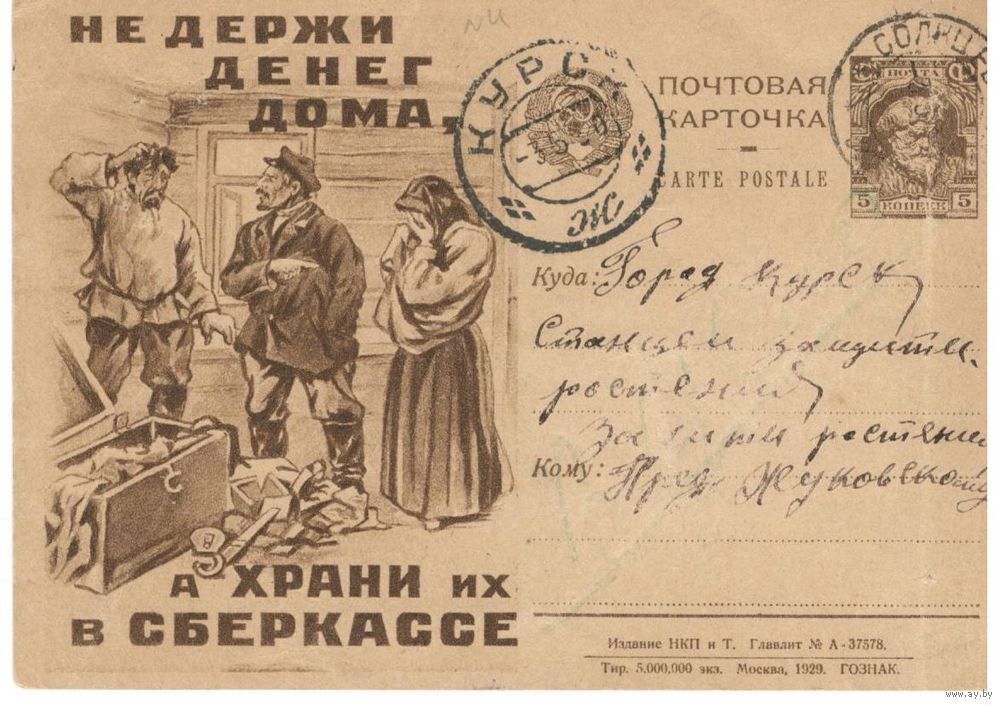 НЕ ДЕРЖИ
ДЕНЕГ
ДОМА,
А ХРАНИ ИХ
В СБЕРКАССЕ
КУРСК
ПОЧТОВАЯ
КАРТОЧКА
CARTE POSTALE
СОЛНЦЕ
ПОЧТА
5 КОПЕЕК 5
Куда: Город Курск
Станция защиты
ростений
Защиты ростени
Кому: Пред. Жуковскому
Издание НКП и Т. Главлит № А-37578.
Тир. 5.000.000 экз. Москва, 1929. ГОЗНАК.
www.ay.by